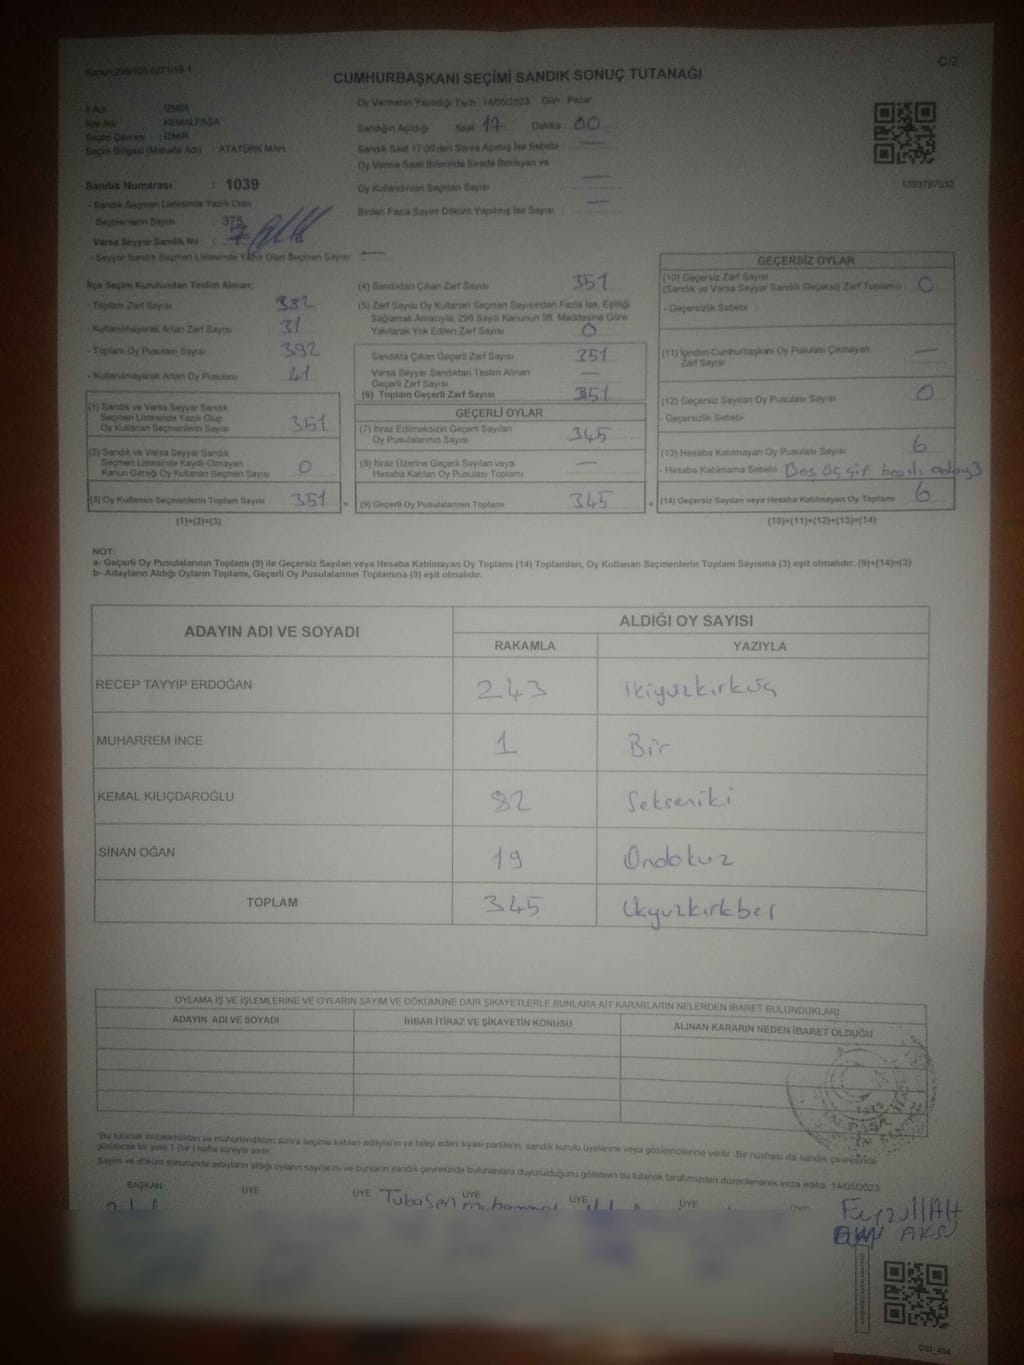 Kanun:298/105.0271/18-1
C/2
CUMHURBAŞKANI SEÇİMİ SANDIK SONUÇ TUTANAĞI
İl Adı : İZMİR
İlçe Adı : KEMALPAŞA
Seçim Çevresi : İZMİR
Seçim Bölgesi (Mahalle Adı) : ATATÜRK MAH.
Sandık Numarası : 1039
- Sandık Seçmen Listesinde Yazılı Olan
Seçmenlerin Sayısı : 375
Varsa Seyyar Sandık No :
- Seyyar Sandık Seçmen Listesinde Yazılı Olan Seçmen Sayısı : —
Oy Vermenin Yapıldığı Tarih : 14/05/2023 Gün : Pazar
Sandığın Açıldığı Saat : 17 Dakika : 00
Sandık Saat 17:00'den Sonra Açılmış İse Sebebi : —
Oy Verme Saati Bitiminde Sırada Bekleyen ve
Oy Kullandırılan Seçmen Sayısı : —
Birden Fazla Sayım Döküm Yapılmış İse Sayısı : —
1099787032
İlçe Seçim Kurulundan Teslim Alınan;
- Toplam Zarf Sayısı : 382
- Kullanılmayarak Artan Zarf Sayısı : 31
- Toplam Oy Pusulası Sayısı : 392
- Kullanılmayarak Artan Oy Pusulası : 41
(1) Sandık ve Varsa Seyyar Sandık
Seçmen Listesinde Yazılı Olup
Oy Kullanan Seçmenlerin Sayısı 351
(2) Sandık ve Varsa Seyyar Sandık
Seçmen Listesinde Kayıtlı Olmayan
Kanun Gereği Oy Kullanan Seçmen Sayısı 0
(3) Oy Kullanan Seçmenlerin Toplam Sayısı 351 =
(1)+(2)=(3)
(4) Sandıktan Çıkan Zarf Sayısı : 351
(5) Zarf Sayısı Oy Kullanan Seçmen Sayısından Fazla İse, Eşitliği
Sağlamak Amacıyla, 298 Sayılı Kanunun 98. Maddesine Göre
Yakılarak Yok Edilen Zarf Sayısı : 0
Sandıkta Çıkan Geçerli Zarf Sayısı 351
Varsa Seyyar Sandıktan Teslim Alınan
Geçerli Zarf Sayısı —
(6) Toplam Geçerli Zarf Sayısı 351
GEÇERLİ OYLAR
(7) İtiraz Edilmeksizin Geçerli Sayılan
Oy Pusulalarının Sayısı 345
(8) İtiraz Üzerine Geçerli Sayılan veya
Hesaba Katılan Oy Pusulası Toplamı —
(9) Geçerli Oy Pusulalarının Toplamı 345 +
GEÇERSİZ OYLAR
(10) Geçersiz Zarf Sayısı
(Sandık ve Varsa Seyyar Sandık Geçersiz Zarf Toplamı) : 0
- Geçersizlik Sebebi :
(11) İçinden Cumhurbaşkanı Oy Pusulası Çıkmayan
Zarf Sayısı —
(12) Geçersiz Sayılan Oy Pusulası Sayısı 0
- Geçersizlik Sebebi
(13) Hesaba Katılmayan Oy Pusulası Sayısı : 6
- Hesaba Katılmama Sebebi : Boş üç çift
(14) Geçersiz Sayılan veya Hesaba Katılmayan Oy Toplamı 6
(10)+(11)+(12)+(13)=(14)
NOT:
a- Geçerli Oy Pusulalarının Toplamı (9) ile Geçersiz Sayılan veya Hesaba Katılmayan Oy Toplamı (14) Toplamları, Oy Kullanan Seçmenlerin Toplam Sayısına (3) eşit olmalıdır. (9)+(14)=(3)
b- Adayların Aldığı Oyların Toplamı, Geçerli Oy Pusulalarının Toplamına (9) eşit olmalıdır.
ADAYIN ADI VE SOYADI
ALDIĞI OY SAYISI
RAKAMLA YAZIYLA
RECEP TAYYİP ERDOĞAN 243 ikiyuzkırküç
MUHARREM İNCE 1 Bir
KEMAL KILIÇDAROĞLU 82 Sekseniki
SİNAN OĞAN 19 Ondokuz
TOPLAM 345 Üçyuzkırkbeş
OYLAMA İŞ VE İŞLEMLERİNE VE OYLARIN SAYIM VE DÖKÜMÜNE DAİR ŞİKAYETLERLE BUNLARA AİT KARARLARIN NELERDEN İBARET BULUNDUKLARI
ADAYIN ADI VE SOYADI İHBAR İTİRAZ VE ŞİKAYETİN KONUSU ALINAN KARARIN NEDEN İBARET OLDUĞU
*Bu tutanak imzalandıktan ve mühürlendikten sonra seçime katılan adayların ve talep eden siyasi partilerin, sandık kurulu üyelerine veya gözlemcilerine verilir. Bir nüshası da sandık çevresinde
görülecek bir yere 1 (bir) hafta süreyle asılır.
Sayım ve döküm sonucunda adayların aldığı oyların sayılarını ve bunların sandık çevresinde bulunanlara duyurulduğunu gösteren bu tutanak tarafımızdan düzenlenerek imza edildi. 14/05/2023
BAŞKAN ÜYE ÜYE ÜYE ÜYE ÜYE ÜYE
Tubaşen Muhammet
Feyzullah
AKSU
SSI_404